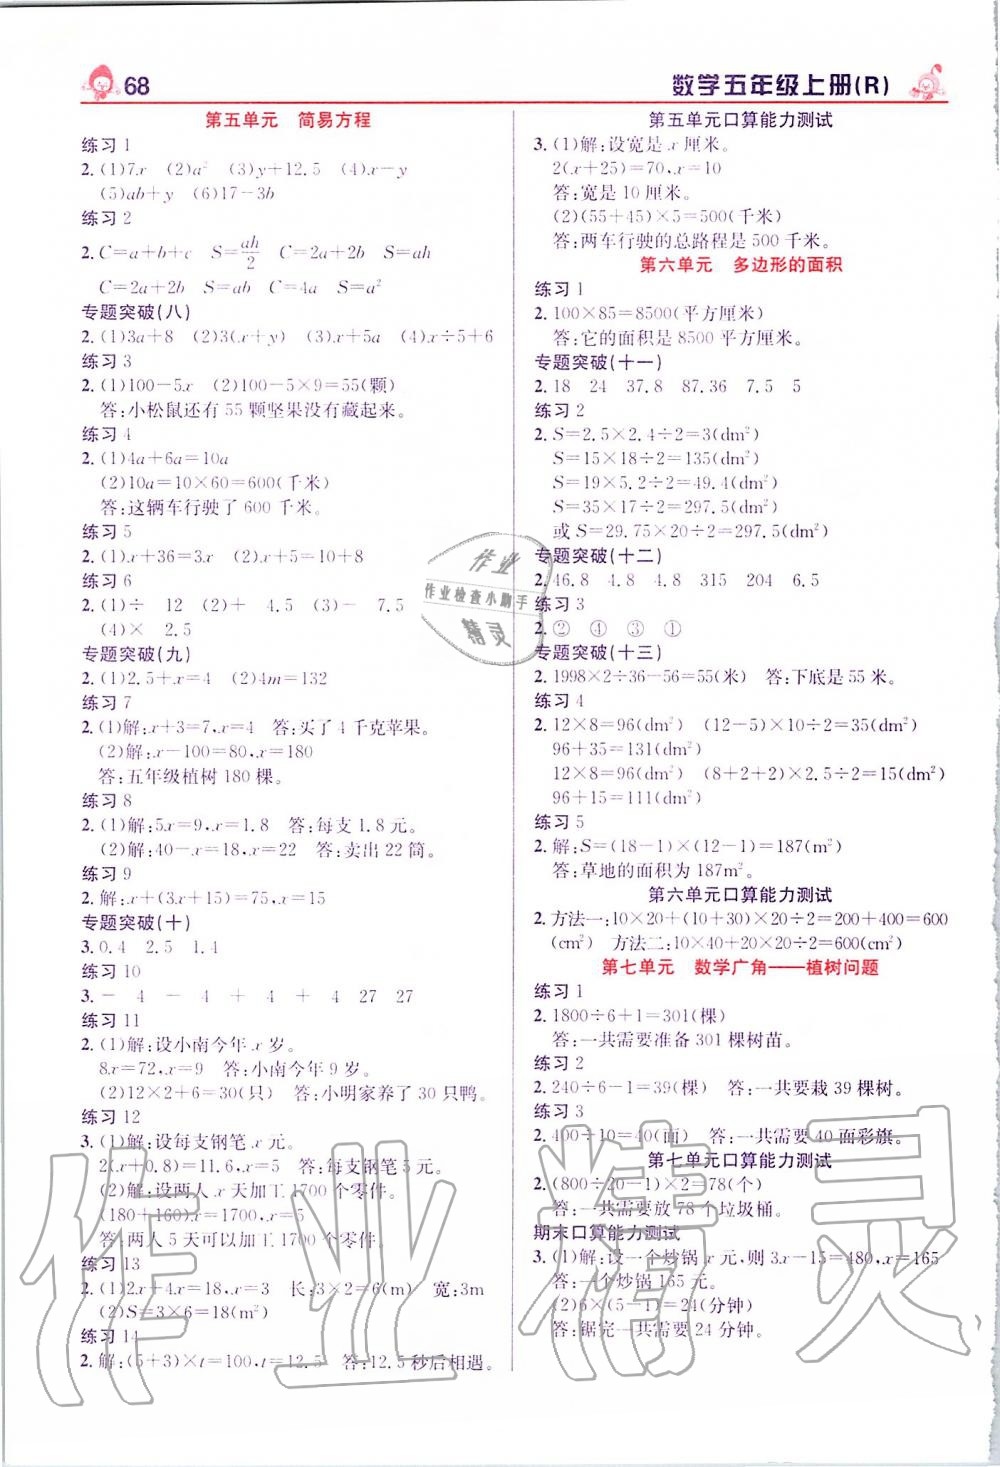 68
数学五年级上册(R)
第五单元 简易方程
练习 1
2. (1)7x (2)a² (3)y+12.5 (4)x-y
(5)ab+y (6)17-3b
练习 2
2. C=a+b+c S=ah/2 C=2a+2b S=ah
C=2a+2b S=ab C=4a S=a²
专题突破(八)
2. (1)3a+8 (2)3(x+y) (3)4.5x (4)x÷5+6
练习 3
2. (1)100-5x (2)100-5×9=55(颗)
答:小松鼠还有 55 颗坚果没有藏起来。
练习 4
2. (1)4a+6a=10a
(2)10a=10×60=600(千米)
答:这辆车行驶了 600 千米。
练习 5
2. (1)x+36=3x (2)x+5=10+8
练习 6
2. (1)÷ 12 (2)+ 4.5 (3)- 7.5
(4)× 2.5
专题突破(九)
2. (1)2.5+x=4 (2)4m=132
练习 7
2. (1)解:x+3=7,x=4 答:买了 4 千克苹果。
(2)解:x-100=80,x=180
答:五年级植树 180 棵。
练习 8
2. (1)解:5x=9,x=1.8 答:每支 1.8 元。
(2)解:40-x=18,x=22 答:卖出 22 筒。
练习 9
2. 解:x+(3x+15)=75,x=15
专题突破(十)
3. 0.4 2.5 1.4
练习 10
3. - 4 - 4 + 4 + 4 27 27
练习 11
2. (1)解:设小南今年 x 岁。
8x=72,x=9 答:小南今年 9 岁。
(2)12×2+6=30(只) 答:小明家养了 30 只鸭。
练习 12
3. (1)解:设每支钢笔 x 元。
2(x+0.8)=11.6,x=5 答:每支钢笔 5 元。
(2)解:设两人 x 天加工 1700 个零件。
(180+160)x=1700,x=5
答:两人 5 天可以加工 1700 个零件。
练习 13
2. (1)2x+4x=18,x=3 长:3×2=6(m) 宽:3m
(2)S=3×6=18(m²)
练习 14
2. 解:(5+3)×t=100,t=12.5 答:12.5 秒后相遇。
第五单元口算能力测试
3. (1)解:设宽是 x 厘米。
2(x+25)=70,x=10
答:宽是 10 厘米。
(2)(55+45)×5=500(千米)
答:两车行驶的总路程是 500 千米。
第六单元 多边形的面积
练习 1
2. 100×85=8500(平方厘米)
答:它的面积是 8500 平方厘米。
专题突破(十一)
2. 18 24 37.8 87.36 7.5 5
练习 2
2. S=2.5×2.4÷2=3(dm²)
S=15×18÷2=135(dm²)
S=19×5.2÷2=49.4(dm²)
S=35×17÷2=297.5(dm²)
或 S=29.75×20÷2=297.5(dm²)
专题突破(十二)
2. 46.8 4.8 4.8 315 204 6.5
练习 3
2. ② ④ ③ ①
专题突破(十三)
2. 1998×2÷36-56=55(米) 答:下底是 55 米。
练习 4
2. 12×8=96(dm²) (12-5)×10÷2=35(dm²)
96+35=131(dm²)
12×8=96(dm²) (8+2+2)×2.5÷2=15(dm²)
96+15=111(dm²)
练习 5
2. 解:S=(18-1)×(12-1)=187(m²)
答:草地的面积为187m²。
第六单元口算能力测试
2. 方法一:10×20+(10+30)×20÷2=200+400=600
(cm²) 方法二:10×40+20×20÷2=600(cm²)
第七单元 数学广角——植树问题
练习 1
2. 1800÷6+1=301(棵)
答:一共需要准备 301 棵树苗。
练习 2
2. 240÷6-1=39(棵) 答:一共要栽 39 棵树。
练习 3
2. 400÷10=40(面) 答:一共需要 40 面彩旗。
第七单元口算能力测试
2. (800÷20-1)×2=78(个)
答:一共需要放 78 个垃圾桶。
期末口算能力测试
3. (1)解:设一个炒锅 x 元,则 3x-15=480,x=165
答:一个炒锅 165 元。
(2)6×(5-1)=24(分钟)
答:锯完一共需要 24 分钟。
作业
作业检查小助手
精灵
作业精灵